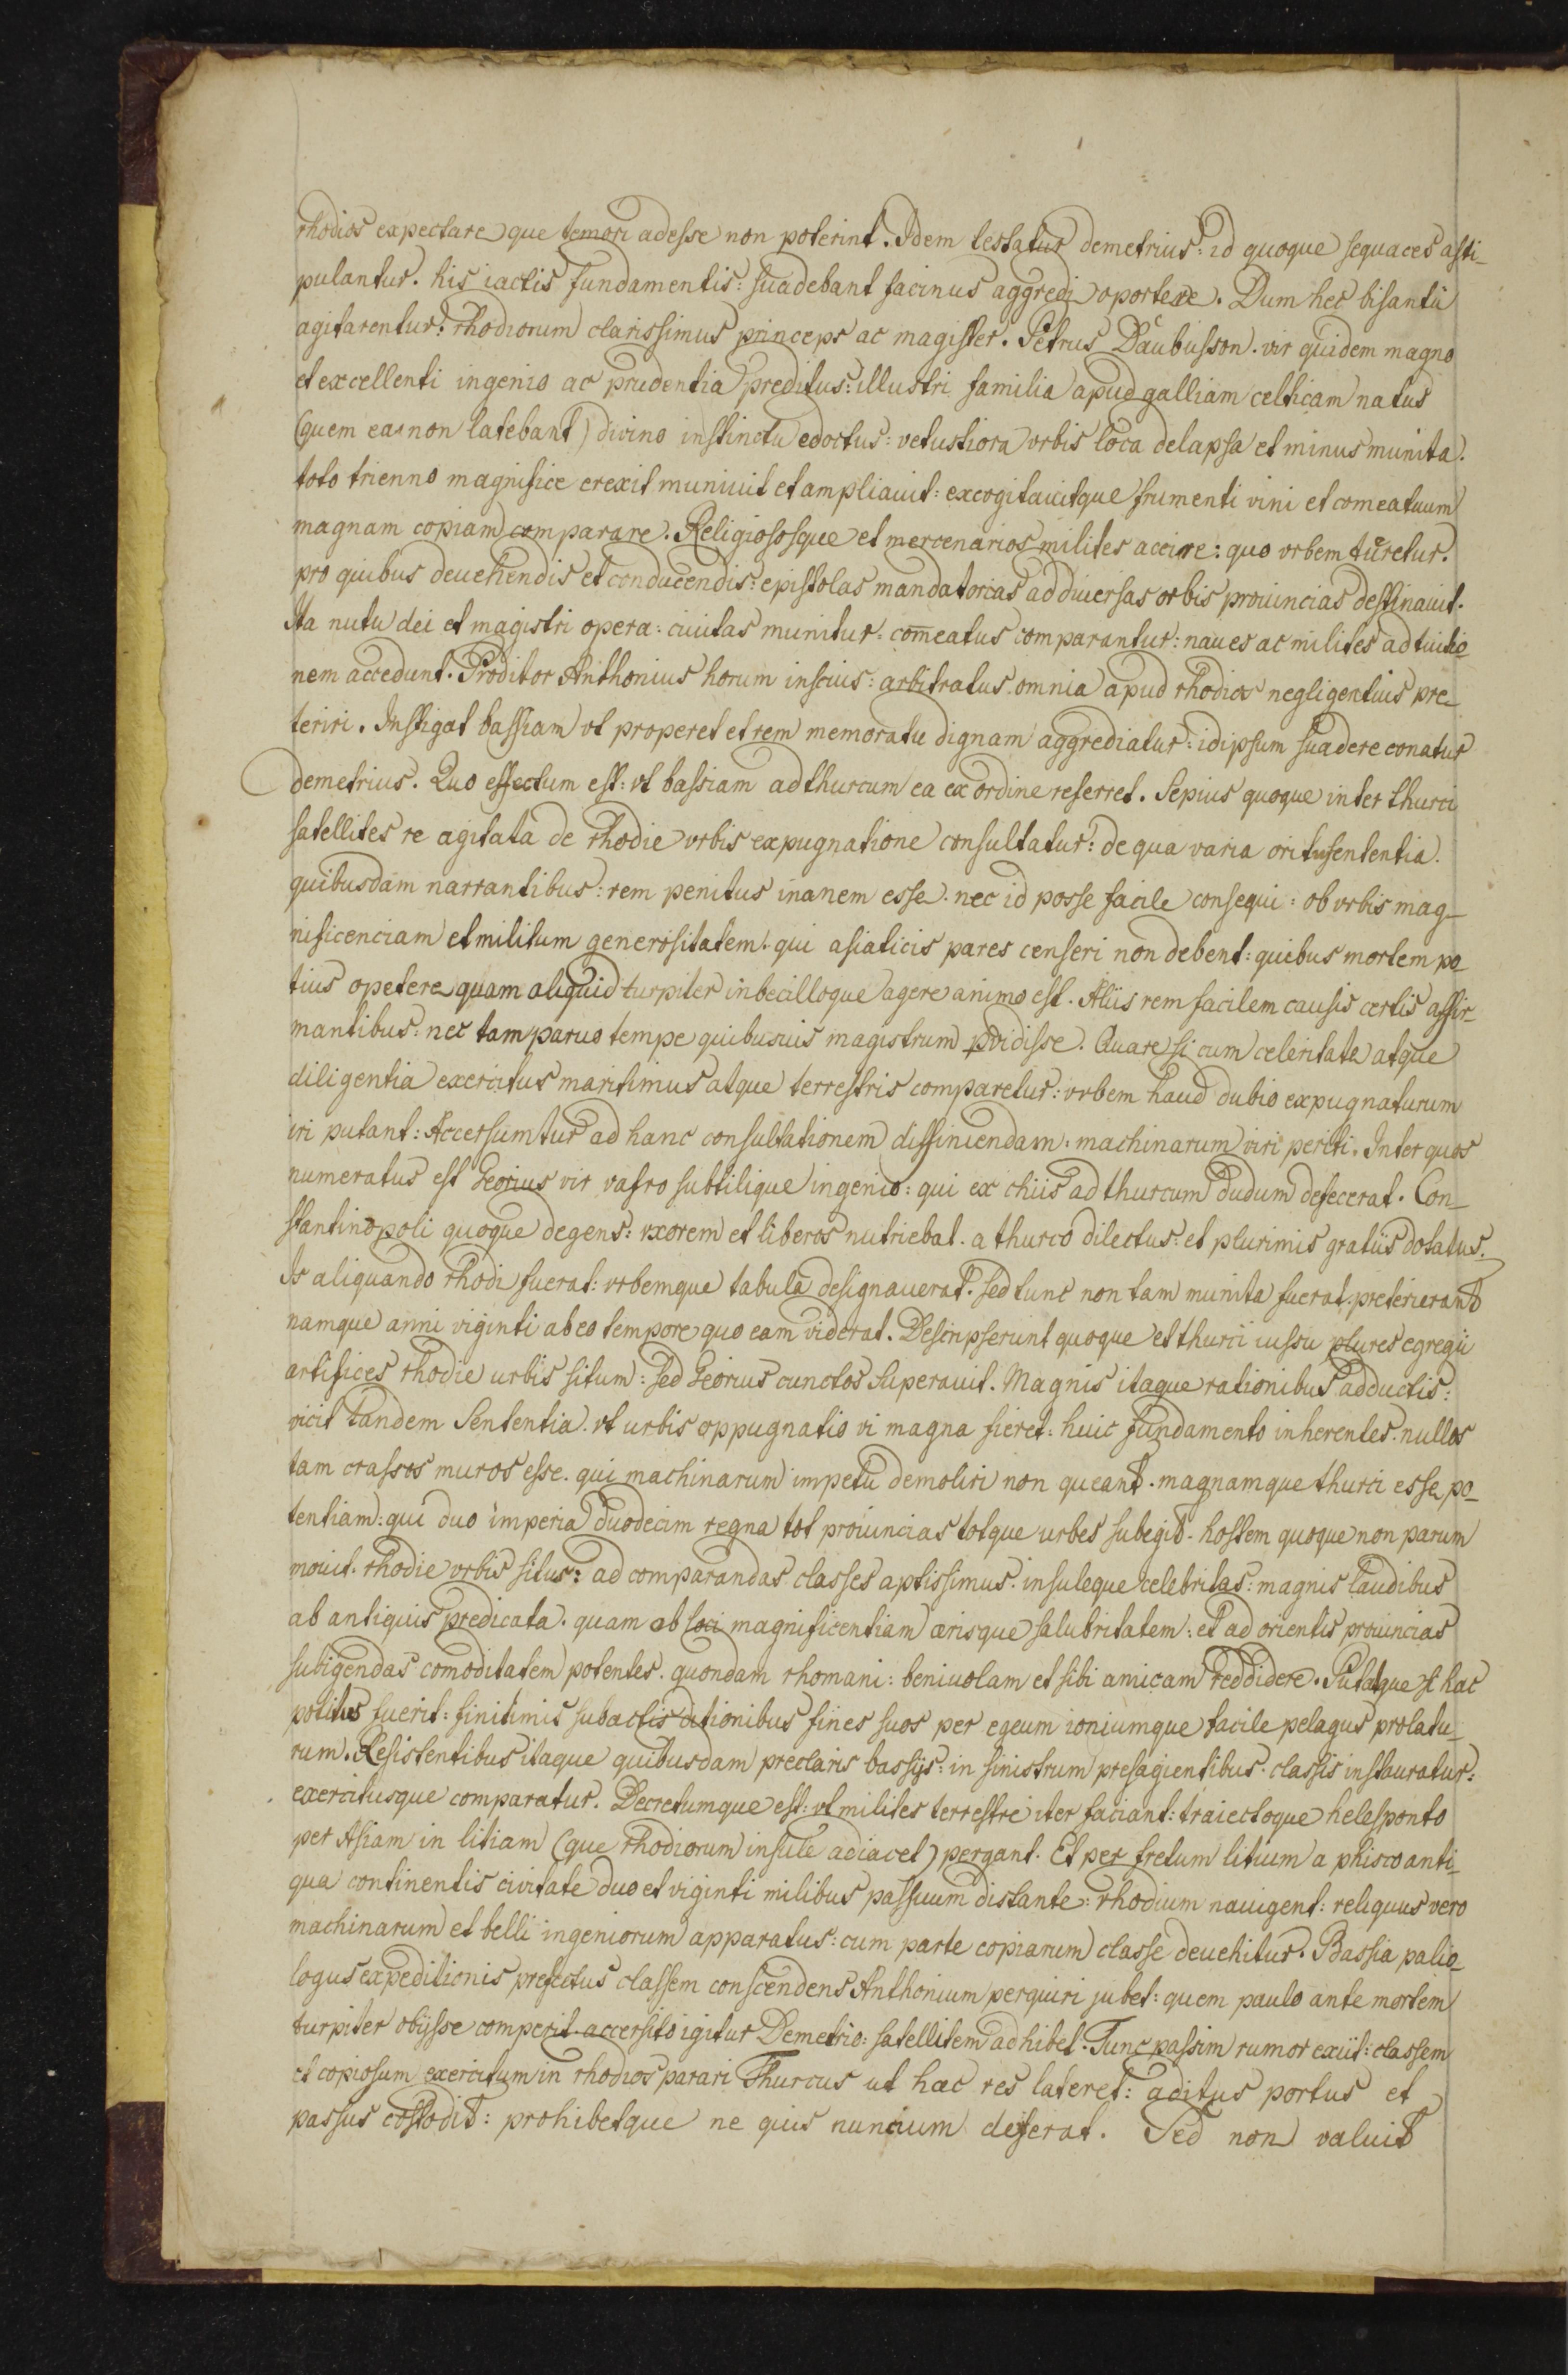 rhodios expectare que temori adesse non poterint. Idem testatur demetrius: id quoque sequaces asti-
pulantur. his iactis fundamentis: suadebant facinus aggredi oportere. Dum hec bisantii
agitarentur: rhodiorum clarissimus princeps ac magister. Petrus Daubusson. vir quidem magno
et excellenti ingenio ac prudentia preditus: illustri familia apud galliam celticam natus
(quem ea non latebant) divino instinctu edoctus: vetustiora vrbis loca delapsa et minus munita.
toto trienno magnifice erexit muniuit et ampliauit: excogitauitque frumenti vini et comeatuum
magnam copiam comparare. Religiososque et mercenarios milites accire: quo vrbem turetur.
pro quibus deuehendis et conducendis: epistolas mandatorias ad diuersas orbis prouincias destinauit.
Ita nutu dei et magistri opera: ciuitas munitur: comeatus comparantur: naues ac milites ad tuitio_
nem accedunt. Proditor Anthonius horum inscius: arbitratus omnia apud rhodios negligentius pre_
teriri. Instigat bassiam vt properet et rem memoratu dignam aggrediatur: idipsum suadere conatur
demetrius. Quo effectum est: vt bassiam ad thurcum ea ex ordine referret. Sepius quoque inter thurci
satellites re agitata de rhodie vrbis expugnatione consultatur: de qua varia oritusententia.
quibusdam narrantibus: rem penitus inanem esse. nec id posse facile consequi: ob vrbis mag_
nificenciam et militum generositatem. qui asiaticis pares censeri non debent: quibus mortem po_
tius opetere quam aliquid turpiter inbecilloque agere animo est. Aliis rem facilem causis certis affir_
mantibus: nec tam paruo tempe quibusuis magistrum pvidisse. Quare si cum celeritate atque
diligentia exercitus maritimus atque terrestris comparetur: vrbem haud dubio expugnaturum
iri putant: Accersumtur ad hanc consultationem diffiniendam: machinarum viri periti. Inter quos
numeratus est Georius vir vafro subtilique ingenio: qui ex chiis ad thurcum dudum defecerat. Con_
stantinopoli quoque degens: vxorem et liberos nutriebat. a thurco dilectus: et plurimis gratiis dotatus.
Is aliquando rhodi fuerat: vrbemque tabula designauerat. sed tunc non tam munita fuerat. preterierant
namque anni viginti ab eo tempore quo eam viderat. Descripserunt quoque et thurci iussu plures egregii
artifices rhodie urbis situm: sed Georius cunctos superauit. Magnis itaque rationibus adductis:
vicit tandem sententia. vt urbis oppugnatio vi magna fieret: huic fundamento inherentes. nullos
tam crassos muros esse. qui machinarum impetu demoliri non queant. magnamque thurci esse po_
tentiam: qui duo imperia duodecim regna tot prouincias totque urbes subegit. hostem quoque non parum
mouit. rhodie vrbis situs: ad comparandas classes aptissimus. insuleque celebritas: magnis laudibus
ab antiquis predicata. quam ob loci magnificentiam aerisque salubritatem: et ad orientis prouincias
subigendas comoditatem potentes. quondam rhomani: beniuolam et sibi amicam reddidere. Putatque si hac
potitus fuerit: finitimis subactis ditionibus fines suos per egeum ioniumque facile pelagus prolatu_
rum. Resistentibus itaque quibusdam preclaris bassijs: in sinistrum presagientibus. classis instauratur:
exercitusque comparatur. Decretumque est: vt milites terrestre iter faciant: traiectoque helesponto
per Asiam in litiam (que rhodiorum insule adiacet) pergant. Et per fretum litium a phisco anti_
qua continentis civitate duo et viginti milibus passuum distante: rhodium nauigent: reliquus vero
machinarum et belli ingeniorum apparatus: cum parte copiarum classe deuehitur. Bassia palio_
logus expeditionis prefectus classem conscendens Anthonium perquiri jubet: quem paulo ante mortem
turpiter obijsse comperit. accersito igitur Demetrio: satellitem adhibet. Tunc passim rumor exiit: classem
et copiosum exercitum in rhodios parari Thurcus ut haec res lateret: aditus portus et
passus costodit: prohibetque ne quis nuncium deferat. Sed non valuit